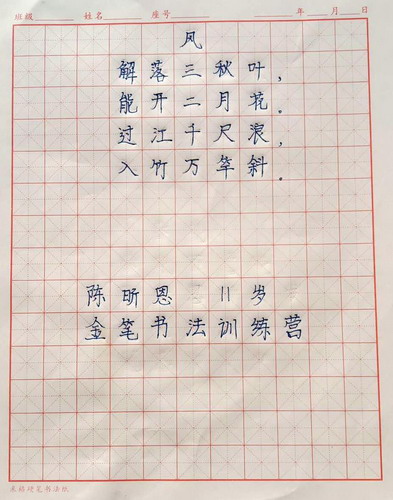 班级 姓名 座号 年 月 日
风
解落三秋叶，
能开二月花。
过江千尺浪，
入竹万竿斜。
陈昕恩 11岁
金笔书法训练营